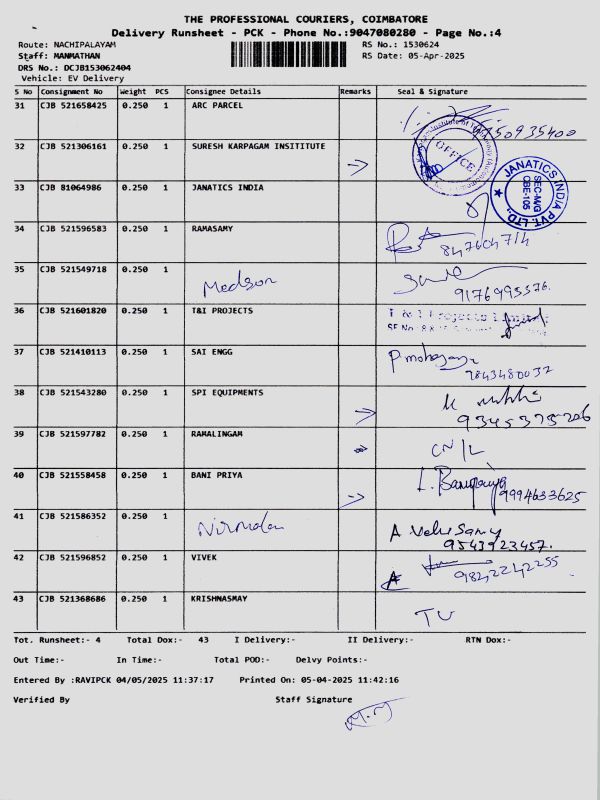 THE PROFESSIONAL COURIERS, COIMBATORE
Delivery Runsheet - PCK - Phone No.:9047080280 - Page No.:4
Route: NACHIPALAYAM
RS No.: 1530624
Staff: MANMATHAN
RS Date: 05-Apr-2025
DRS No.: DCJB153062404
Vehicle: EV Delivery
S No Consignment No Weight PCS Consignee Details Remarks Seal & Signature
31 CJB 521658425 0.250 1 ARC PARCEL
32 CJB 521306161 0.250 1 SURESH KARPAGAM INSITITUTE
OFFICE
33 CJB 81064986 0.250 1 JANATICS INDIA
JANATICS INDIA PVT. LTD.
SEC-IWG
CBE-105
34 CJB 521596583 0.250 1 RAMASAMY
847604714
35 CJB 521549718 0.250 1 Medson
9176993576.
36 CJB 521601820 0.250 1 T&I PROJECTS
T & I Projects Limited
SF No.
37 CJB 521410113 0.250 1 SAI ENGG
9843480032
38 CJB 521543280 0.250 1 SPI EQUIPMENTS
9345375206
39 CJB 521597782 0.250 1 RAMALINGAM CN/L
40 CJB 521558458 0.250 1 BANI PRIYA
9994633625
41 CJB 521586352 0.250 1 Nirmala A Velusamy
9543923457.
42 CJB 521596852 0.250 1 VIVEK
9842242255
43 CJB 521368686 0.250 1 KRISHNASMAY
Tot. Runsheet:- 4 Total Dox:- 43 I Delivery:- II Delivery:- RTN Dox:-
Out Time:- In Time:- Total POD:- Delvy Points:-
Entered By :RAVIPCK 04/05/2025 11:37:17 Printed On: 05-04-2025 11:42:16
Verified By Staff Signature